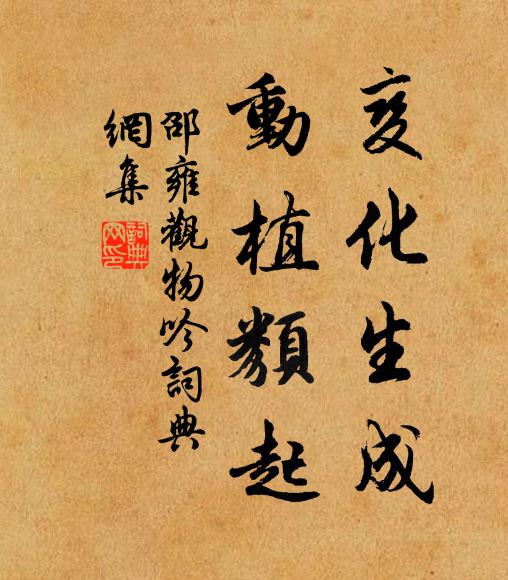 变化生成
動植類起
邵雍觀物吟詞典
網集
詞典
网印